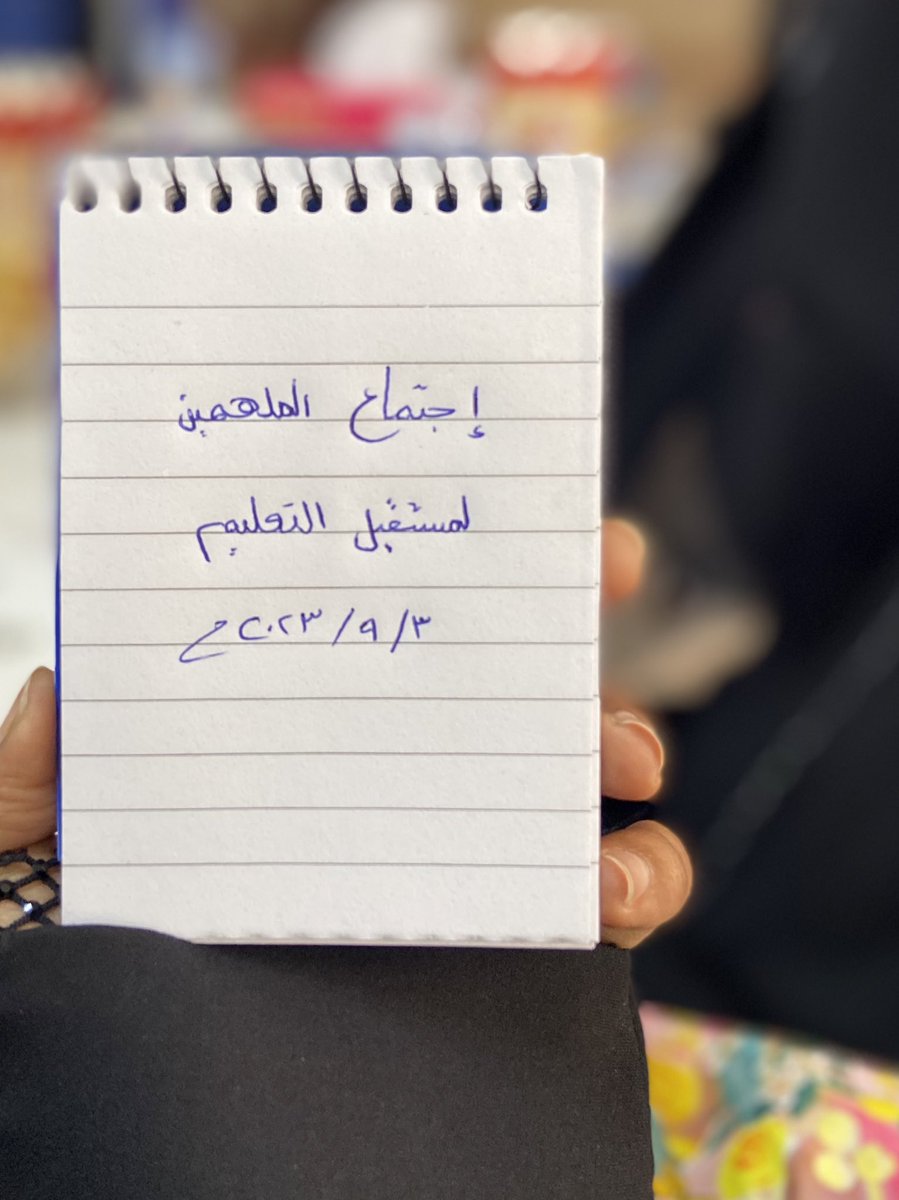 إجتماع الملهمين
لمستقبل التعليم
٣/٩/٢٠٢٣م